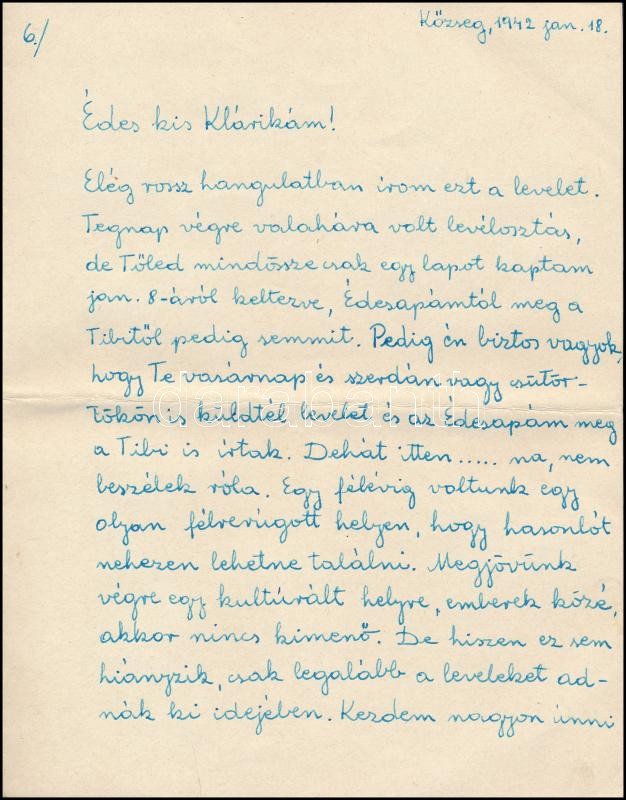 6./
Község, 1942 jan. 18.
Édes kis Klárikám!
Elég rossz hangulatban írom ezt a levelet.
Tegnap végre valahára volt levélosztás,
de Tőled mindössze csak egy lapot kaptam
jan. 8-áról keltezve, Édesapámtól meg a
Tibitől pedig semmit. Pedig én biztos vagyok,
hogy Te vasárnap és szerdán vagy csütör-
tökön is küldtél levelet és az Édesapám meg
a Tibi is írtak. Dehát itten..... na, nem
beszélek róla. Egy félévig voltunk egy
olyan félrerúgott helyen, hogy hasonlót
nehezen lehetne találni. Megjövünk
végre egy kultúrált helyre, emberek közé,
akkor nincs kimenő. De hiszen ez sem
hiányzik, csak legalább a leveleket ad-
nák ki idejében. Kezdem nagyon únni